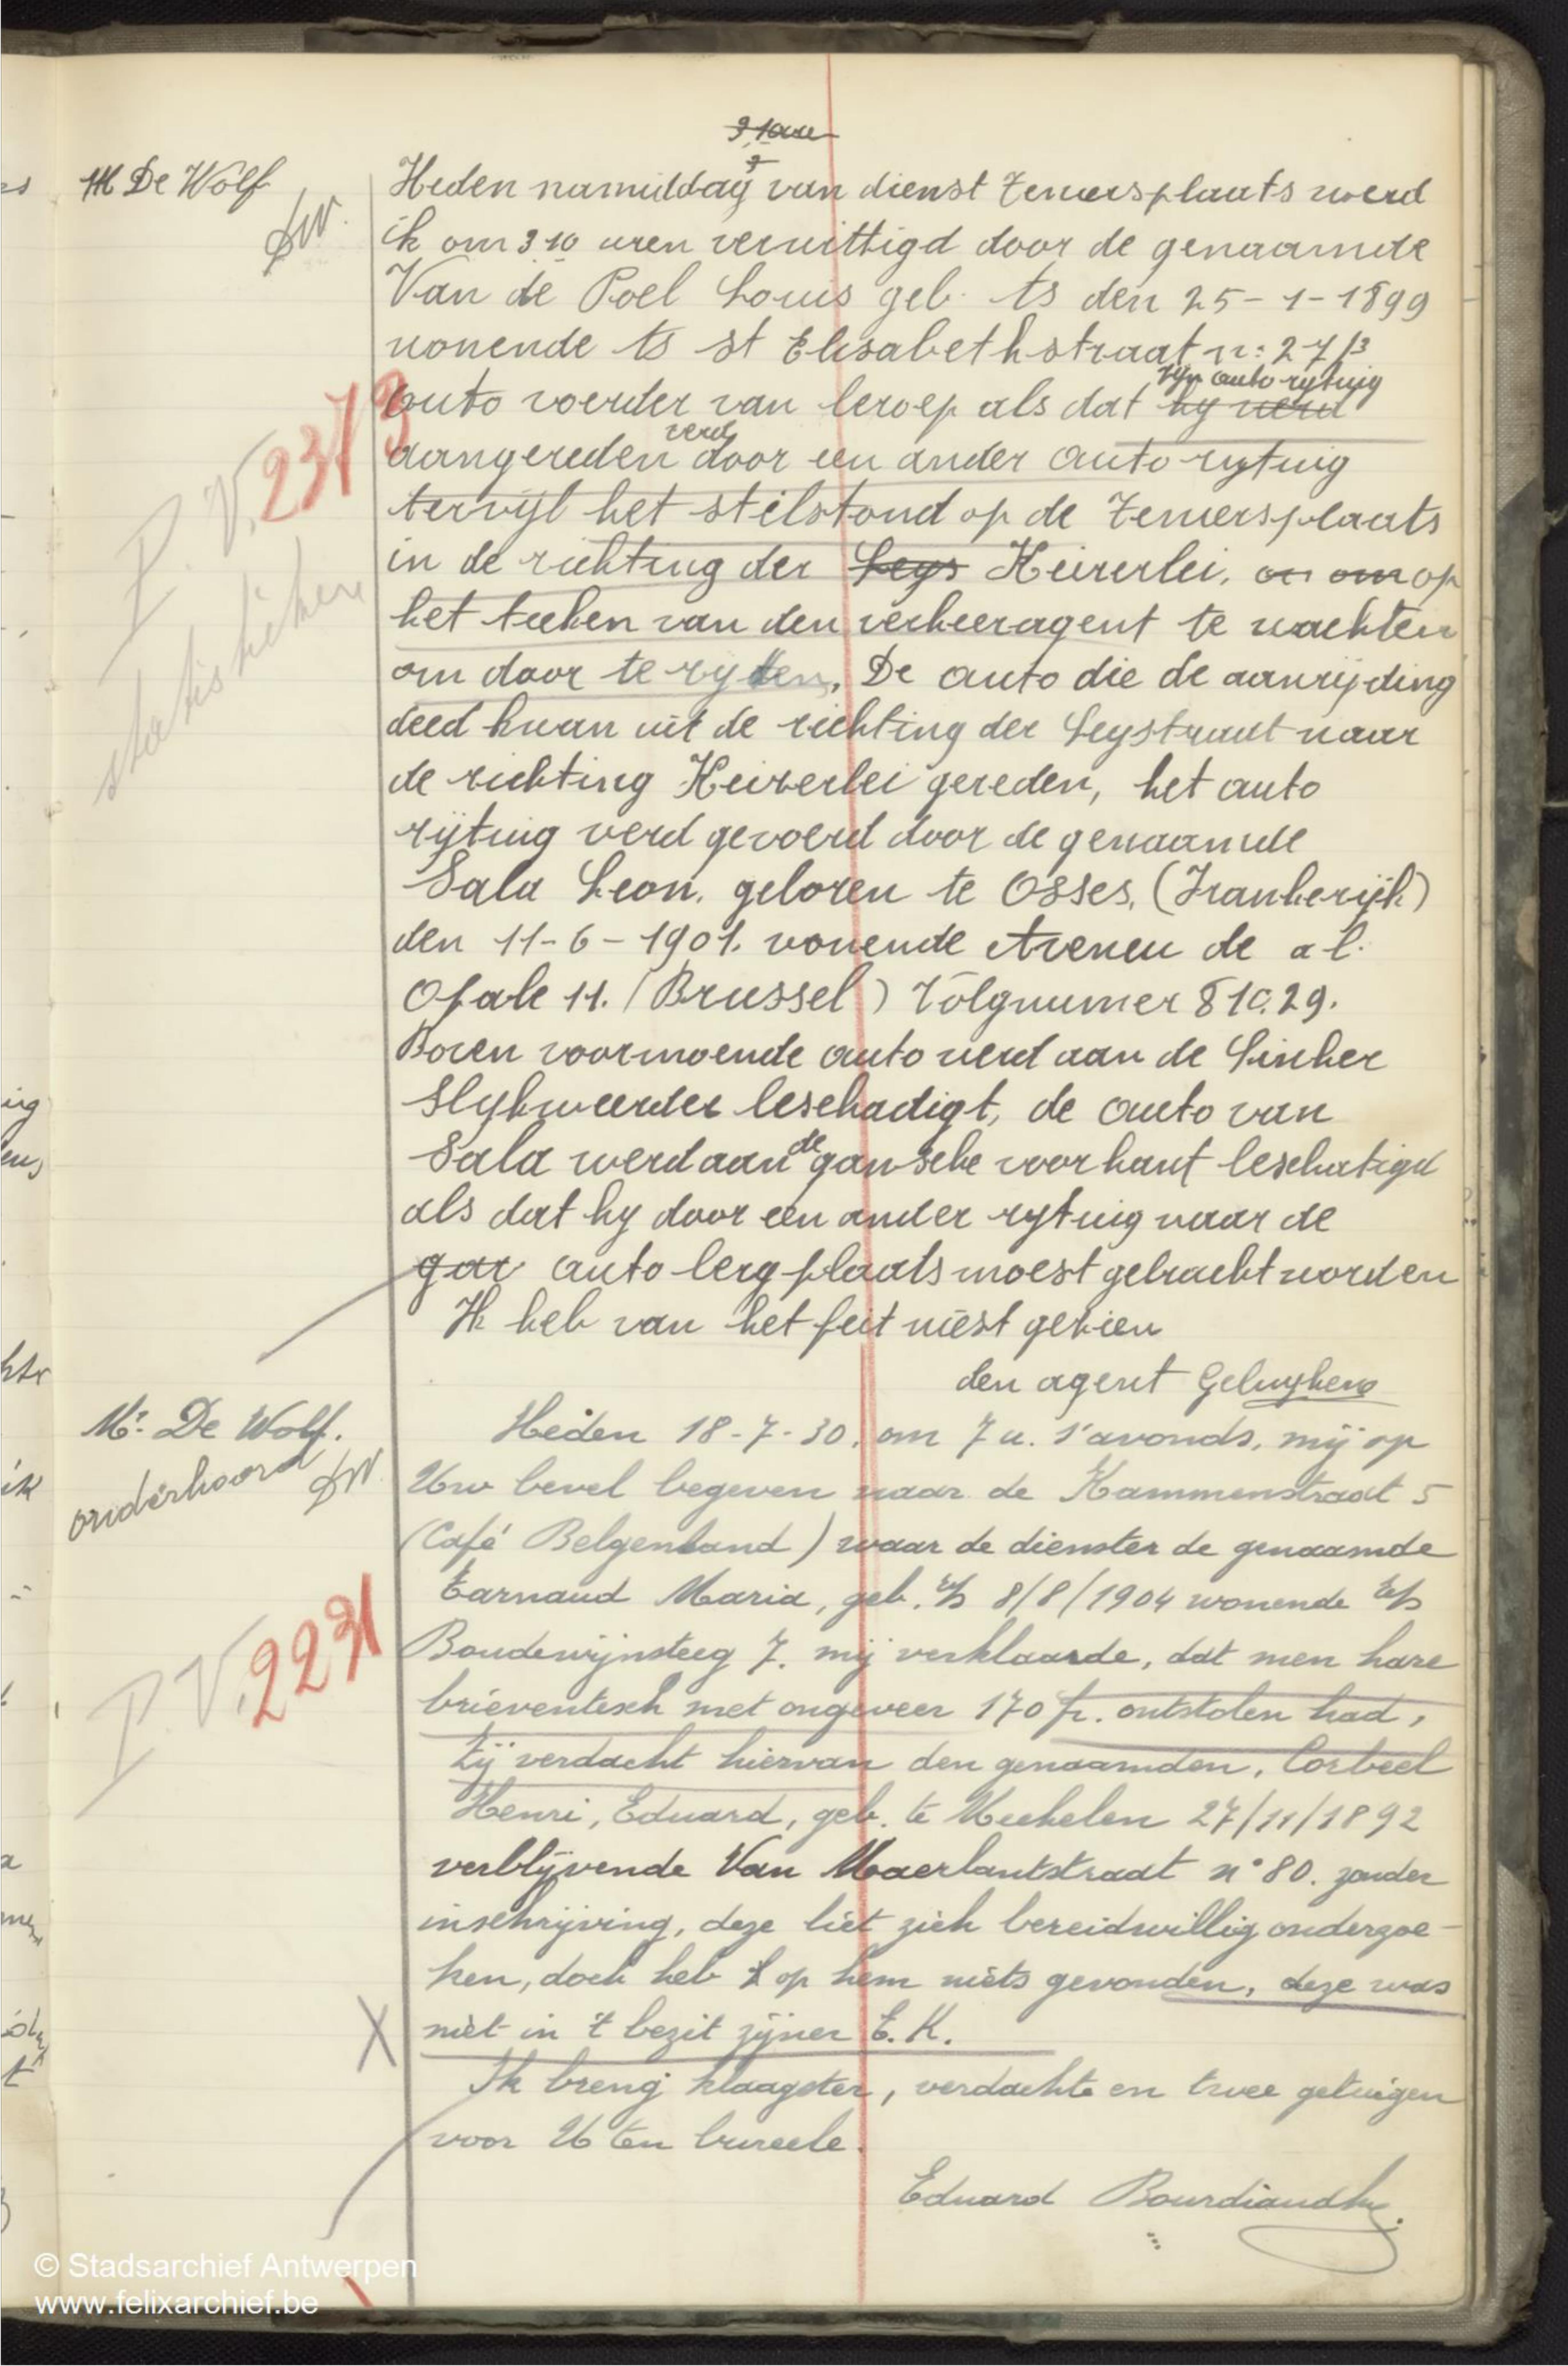 9 10 ure
M De Wolf
DW.
Heden namiddag van dienst Teniersplaats werd
ik om 3 10 uren verwittigd door de genaamde
Van de Poel Louis geb. ts den 25-1-1899
wonende ts st Elisabethstraat n: 27/3
zijn auto rytuig
auto voerder van beroep als dat hy werd
werd
aangereden door een ander auto rytuig
P.V. 2373
statistieken
terwijl het stilstond op de Teniersplaats
in de richting der Leys Keizerlei, en om op
het teeken van den verkeeragent te wachten
om door te ryden. De auto die de aanrijding
deed kwam uit de richting der Leystraat naar
de richting Keizerlei gereden, het auto
rijtuig werd gevoerd door de genaamde
Sala Leon. geboren te Osses, (Frankerijk)
den 11-6-1901. wonende Aveneu de a l.
Opale 11. (Brussel) Volgnumer 810.29.
Boven voornoende auto werd aan de Linker
Slykweerder beschadigt, de auto van
Sala werd aan de gansche voorkant beschatigd
als dat hy door een ander rytuig naar de
gar auto bergplaats moest gebracht worden
Ik heb van het feit niest gezien
den agent Geluykens
Mr. De Wolf.
onderhoord
DW
Heden 18-7-30. om 7 u. s'avonds, mij op
Uw bevel begeven naar de Kammenstraat 5
(Café Belgenland) waar de dienster de genaamde
Earnaud Maria, geb. 8/8/1904 wonende
P.V. 2231
Boudewijnsteeg 7. mij verklaarde, dat men hare
brieventesch met ongeveer 170 fr. ontstolen had,
zij verdacht hiervan den genaamden, Corbeel
Henri, Eduard, geb. te Mechelen 27/11/1892
verblijvende Van Maerlantstraat n° 80. zonder
inschrijving, deze liet zich bereidwillig onderzoe-
ken, doch heb op hem niets gevonden, deze was
X
niet in 't bezit zijner E.K.
Ik breng klaagster, verdachte en twee getuigen
voor U ten bureele.
Eduard
© Stadsarchief Antwerpen
www.felixarchief.be